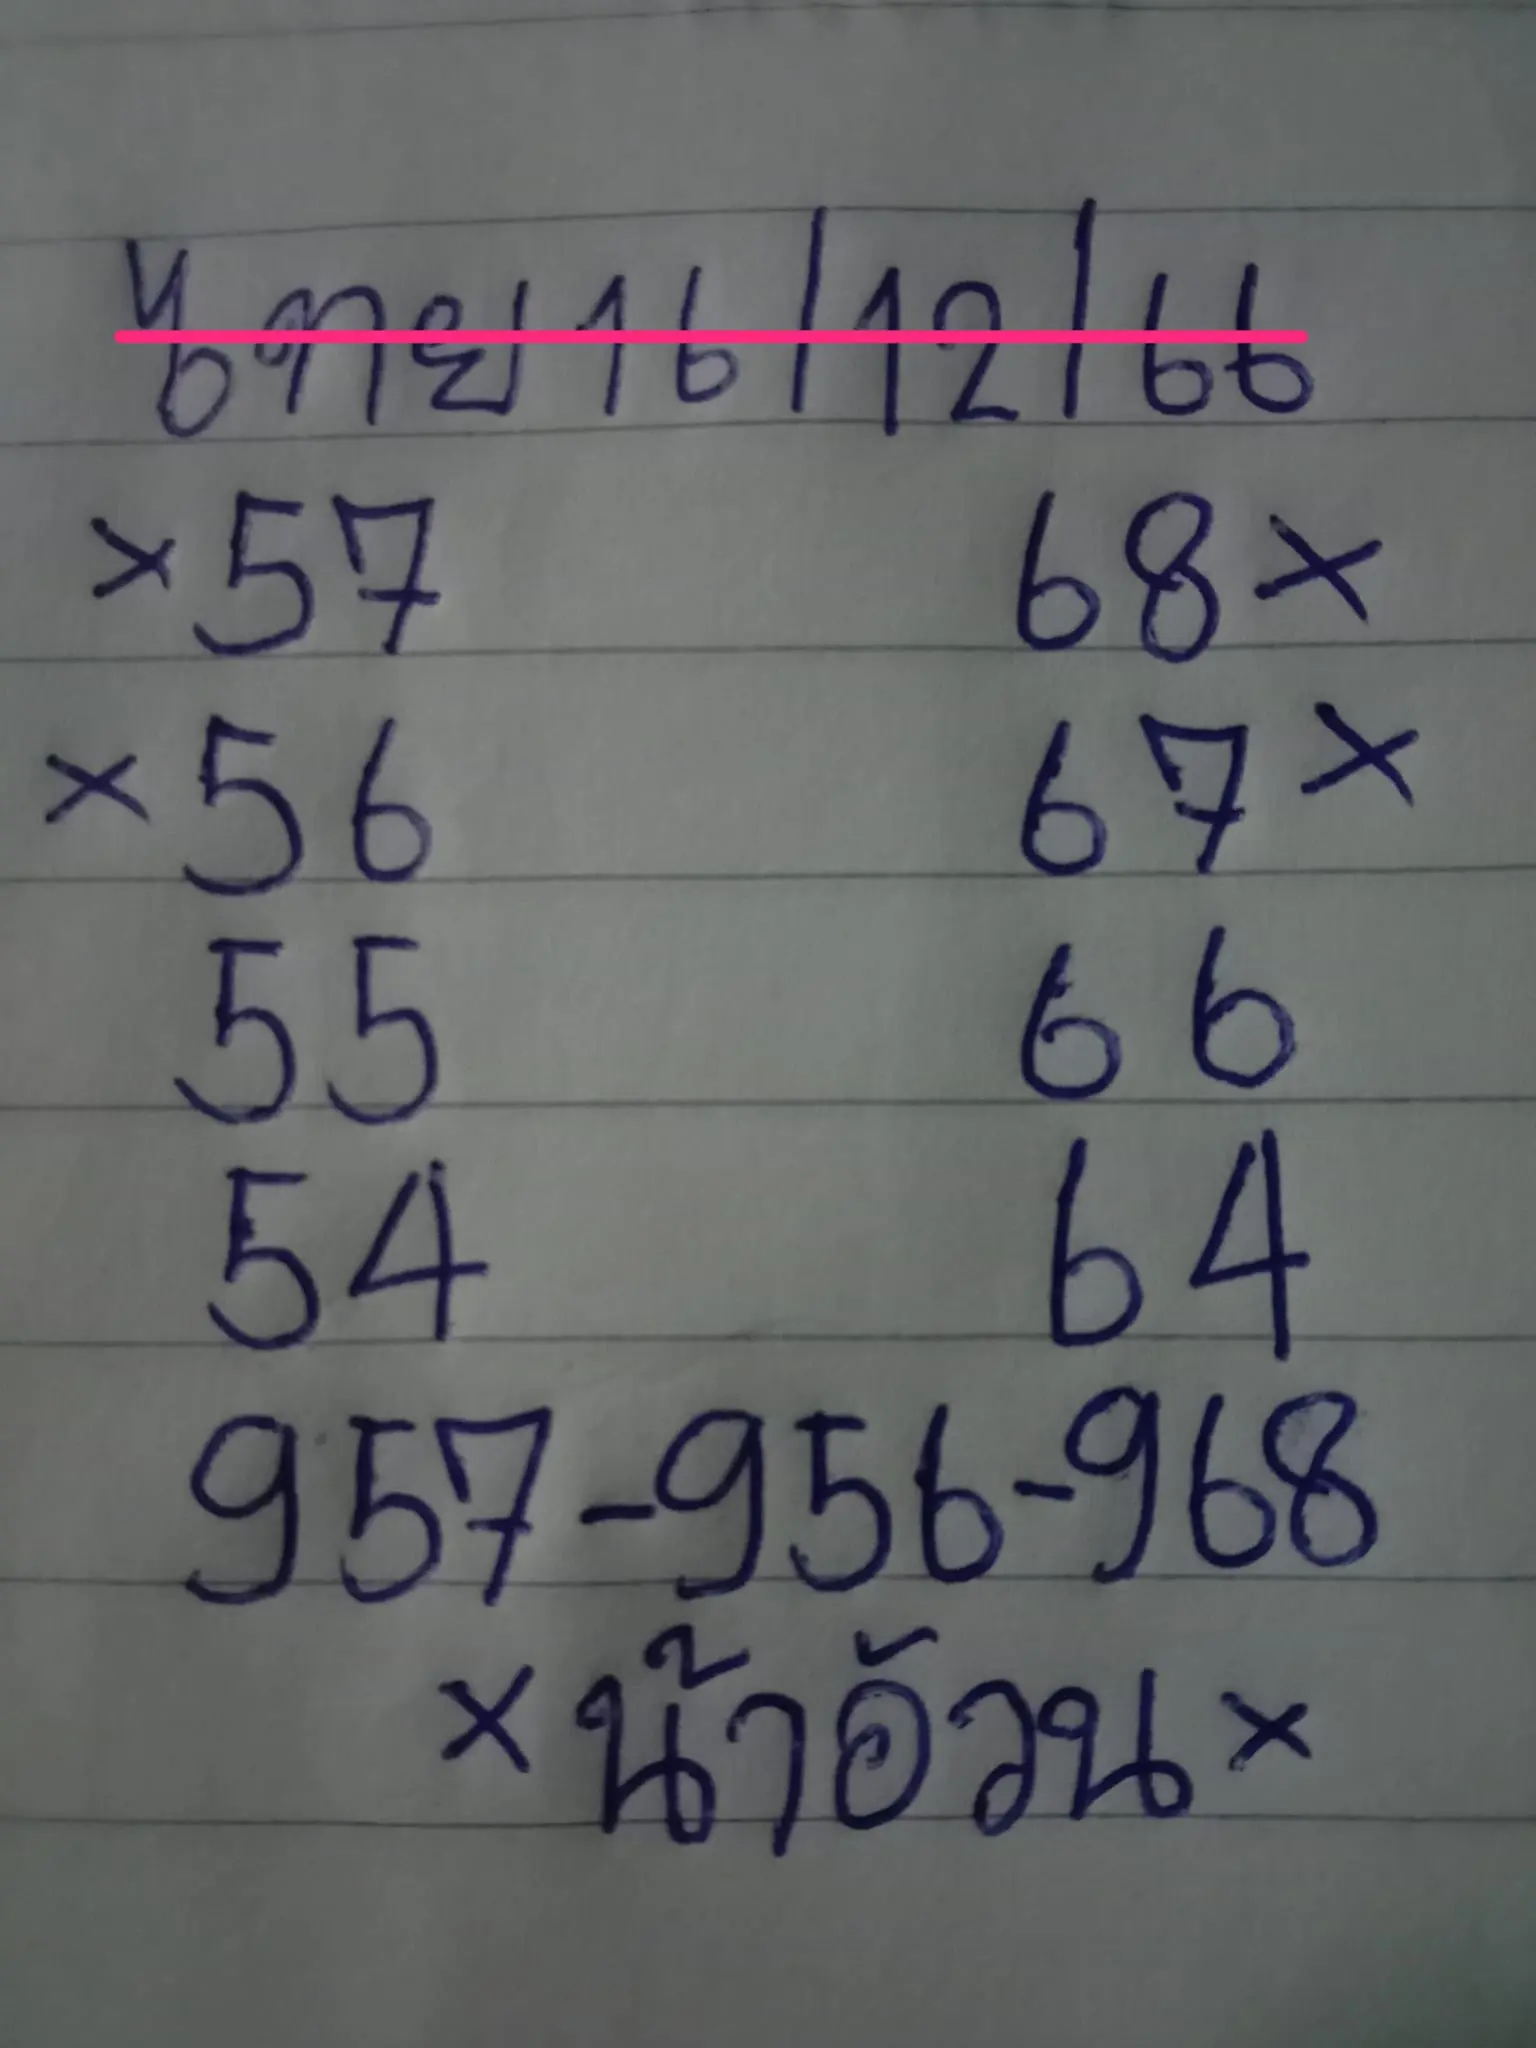 ไทย 16/12/66
×57 68×
×56 67×
55 66
54 64
957-956-968
×น้าอ้วน×